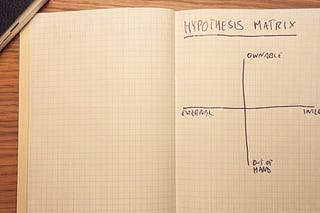 HYPOTHESIS MATRIX
OWNABLE
EXTERNAL
INTE
OUT OF
HAND